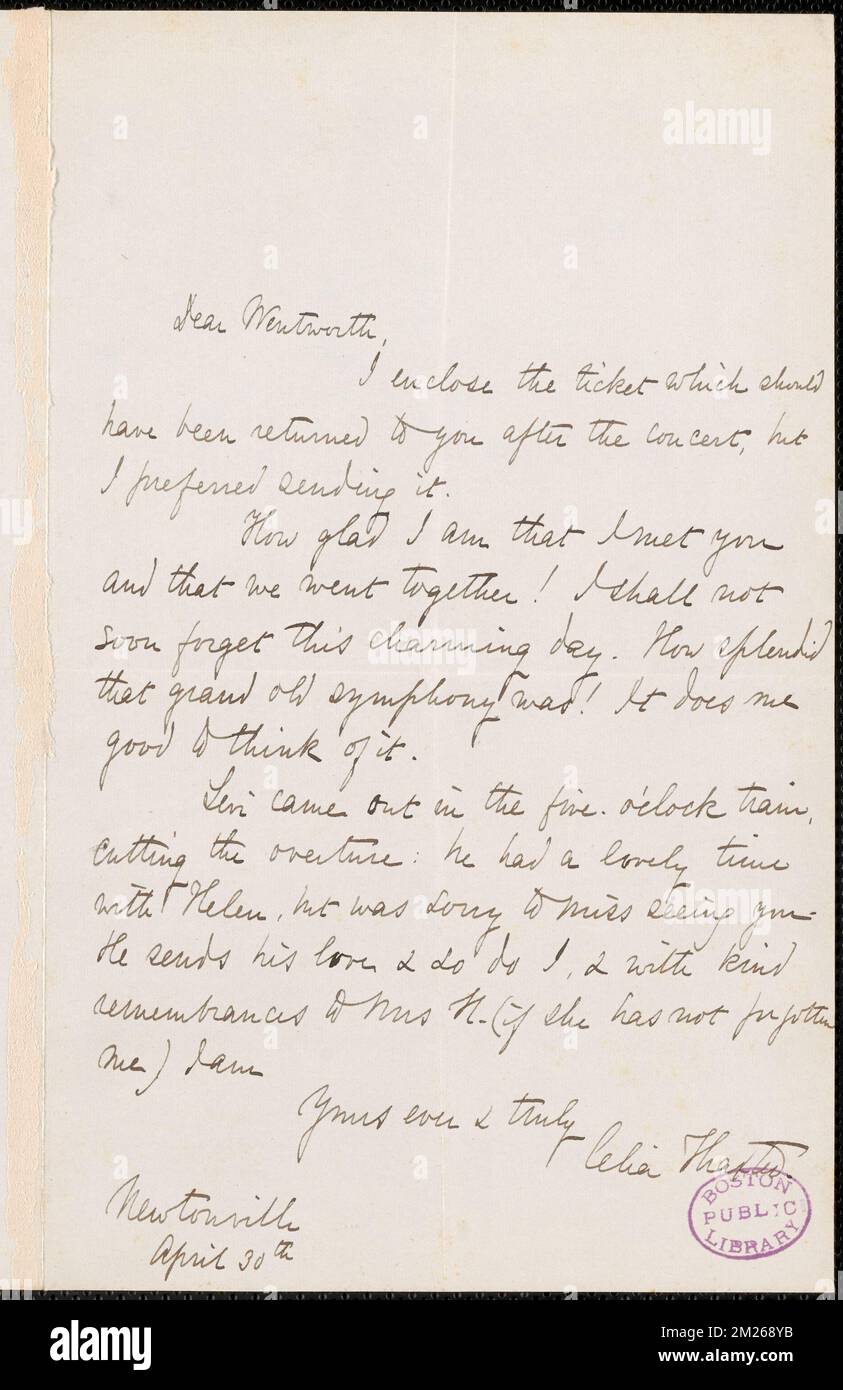 Dear Wentworth,
I enclose the ticket which should
have been returned to you after the concert, but
I preferred sending it.
How glad I am that I met you
and that we went together! I shall not
soon forget this charming day. How splendid
that grand old symphony was! It does me
good to think of it.
Levi came out in the five o'clock train,
cutting the overture: he had a lovely time
with Helen, but was sorry to miss seeing you.
He sends his love & so do I, & with kind
remembrances to Mrs H. (if she has not forgotten
me) I am
Yours ever & truly
Celia Thaxter.
Newtonville
April 30th
BOSTON
PUBLIC
LIBRARY
alamy
alamy
alamy
a
a
a
a
a
a
alamy
Image ID: 2M268YB
www.alamy.com